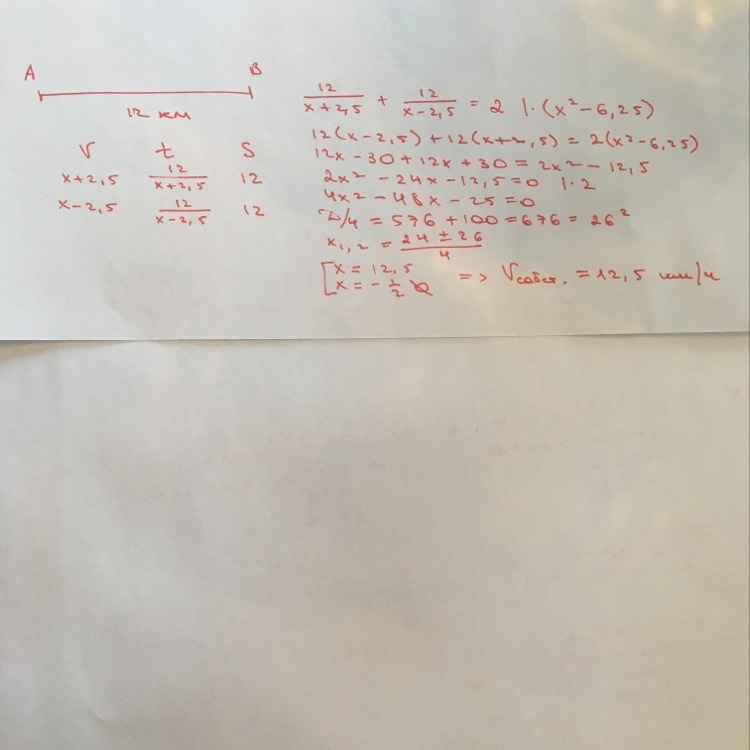 A B
12 км
V t S
x+2,5 12/(x+2,5) 12
x-2,5 12/(x-2,5) 12
12/(x+2,5) + 12/(x-2,5) = 2 |·(x²-6,25)
12(x-2,5)+12(x+2,5)=2(x²-6,25)
12x-30+12x+30=2x²-12,5
2x²-24x-12,5=0 |·2
4x²-48x-25=0
D/4=576+100=676=26²
x₁,₂=(24±26)/4
[x=12,5
x=-1/2 => Vсобст.=12,5 км/ч